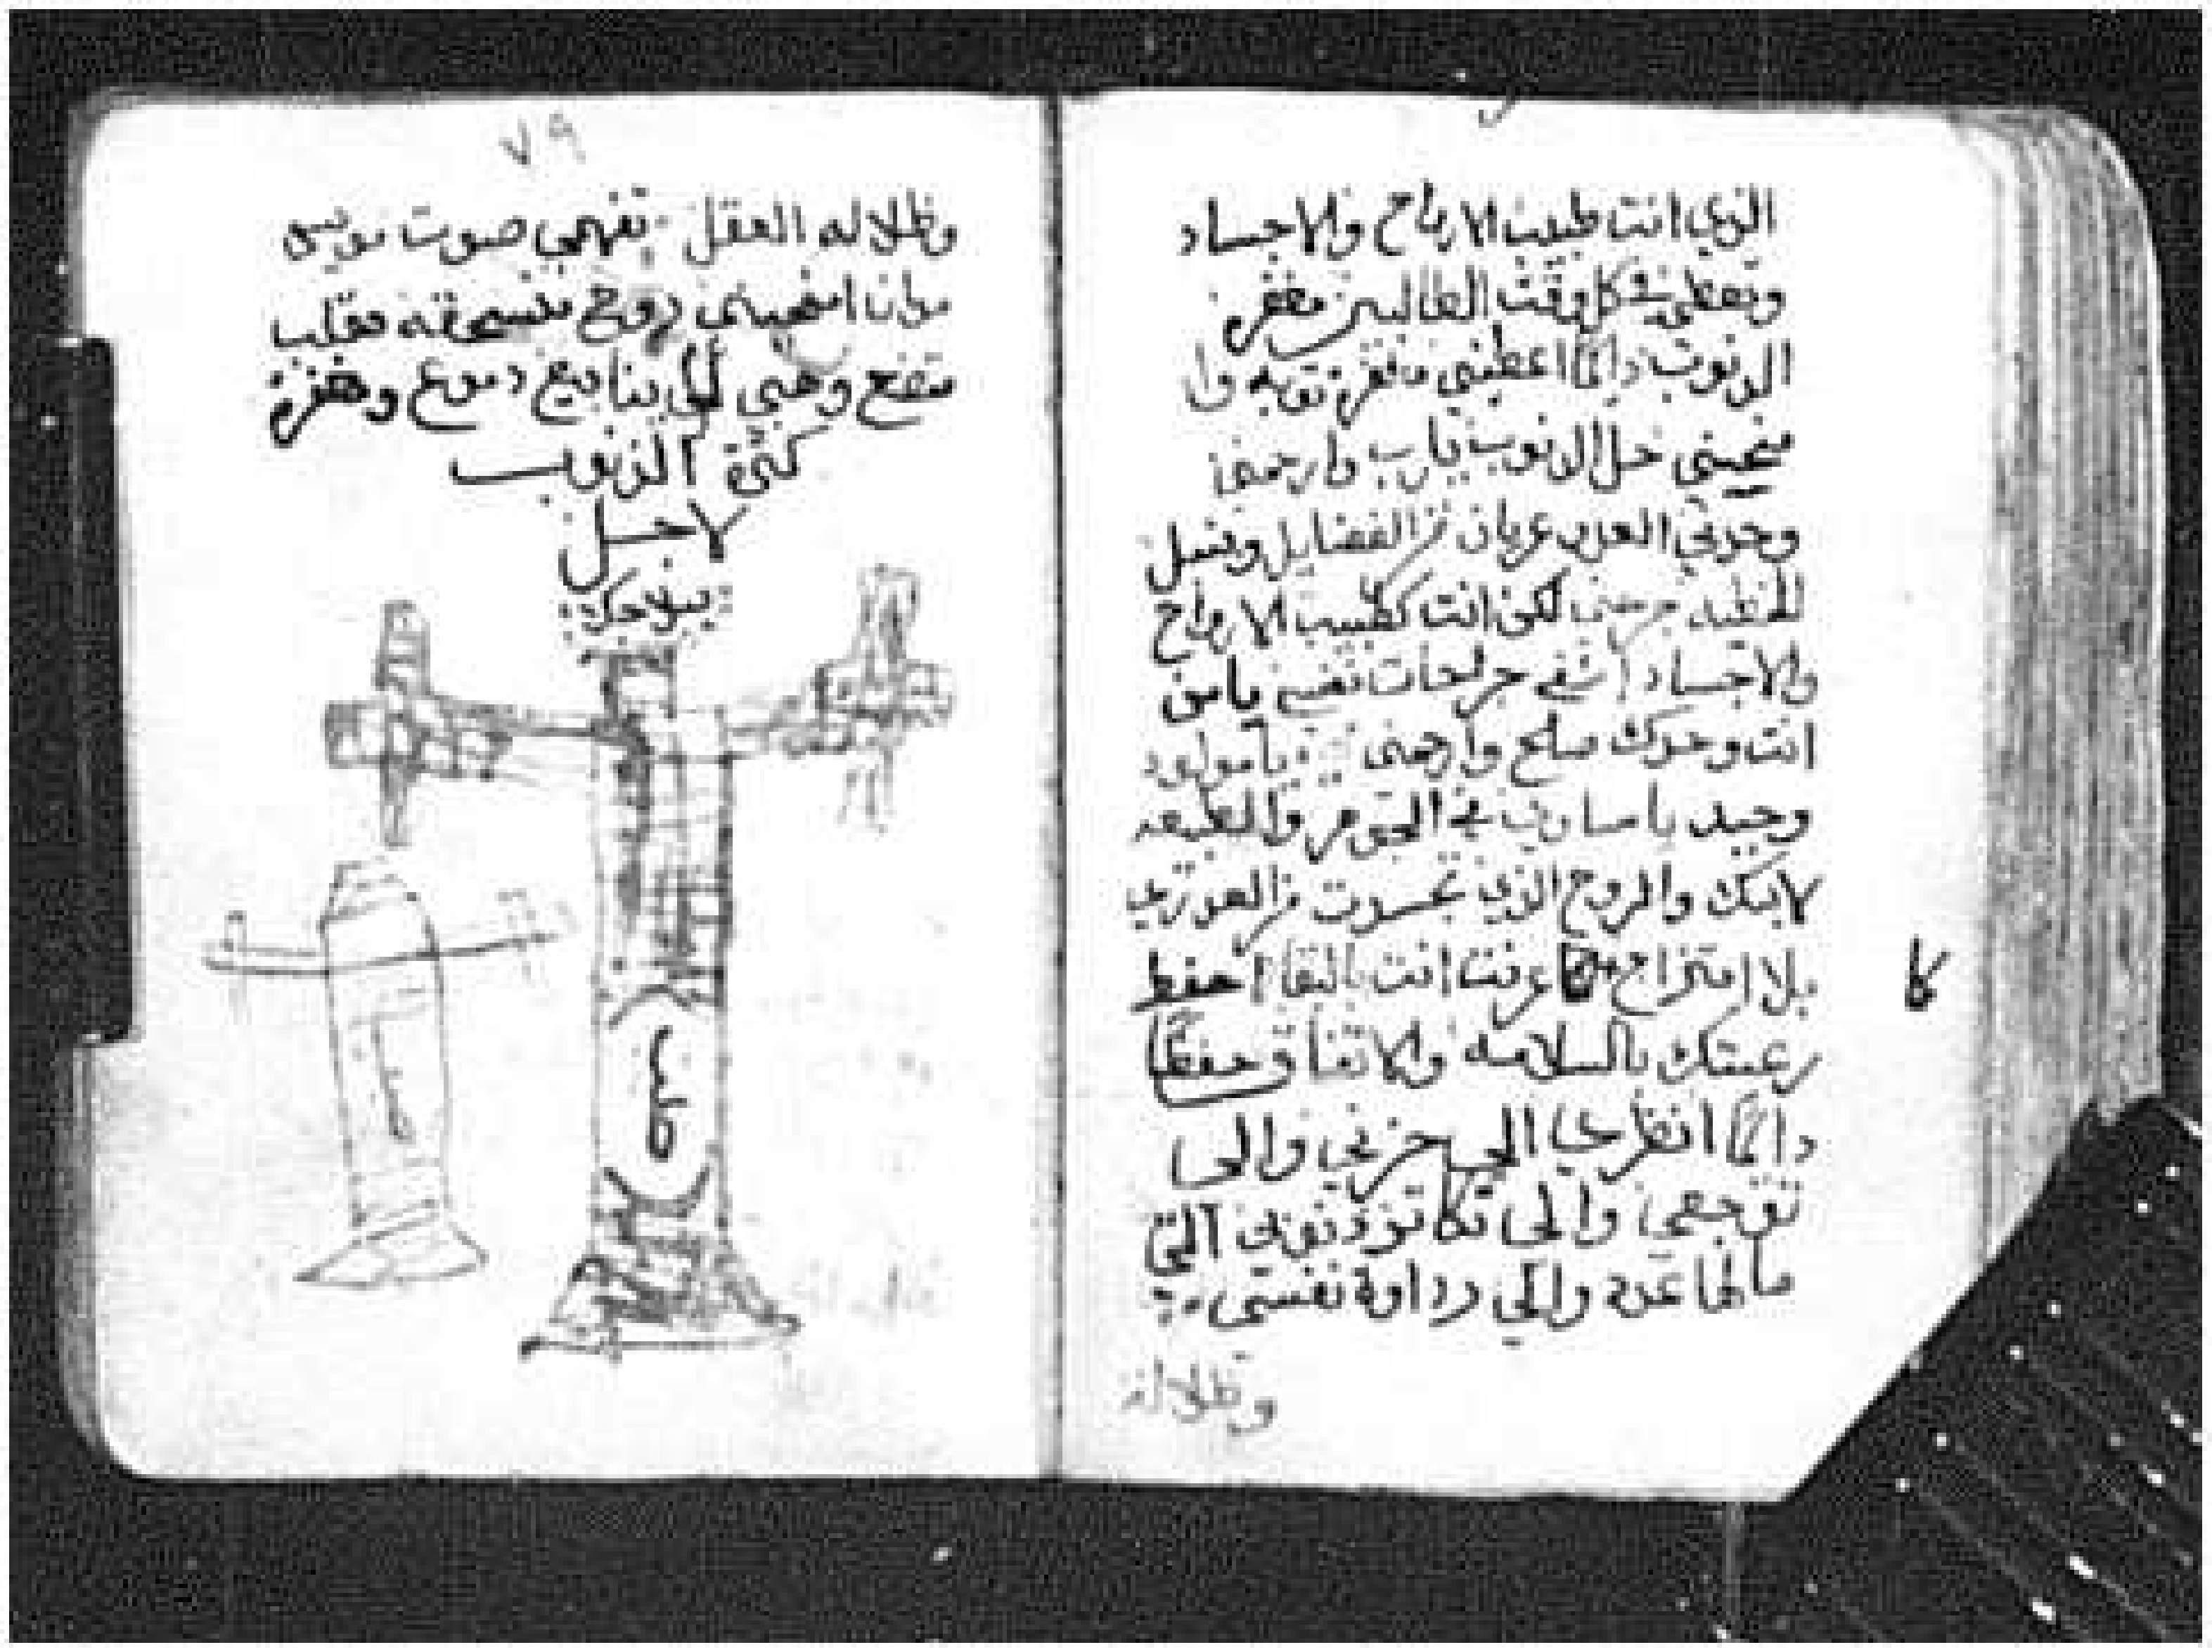 الذي انت طبيب الارواح والاجساد
وتعطي في كل وقت الطالبين مغفرة
الدنوب دايمًا اعطيني مغفرة توبه وا
منحيني حل الدنوب يارب وارحمني
وحدني العدو عريان من الفضايل وبنبل
الخطيه جرحني لكن انت كطبيب الارواح
والاجساد اشفي جراحات نفسي يا من
انت وحدك صلح وارحمني يا مولود
وحيد يا مساوي في الجوهر والطبيعه
لابيك والروح الذي تجسدت من العدري
بلا امتزاج كما عرفت انت بالبقا احفظ
رعيتك بالسلامه والاتفاق وحفظها
دايمًا انظري الى حزني والى
توجعي والى تكاتر دنوبي التي
مالها عدد والى رداوة نفسي
كا
وظلالة
٧٩
وظلاله العقل تفهمي صوت
امنحيني روح منسحقه وقلب
متضع وهبي لي ينابيع دموع ومغفرة
كثرة الذنوب
لاجل
صلب